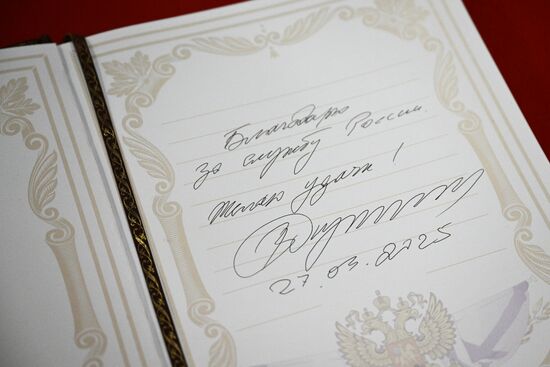 Благодарю
за службу России.
Желаю удачи!
27.03.2025